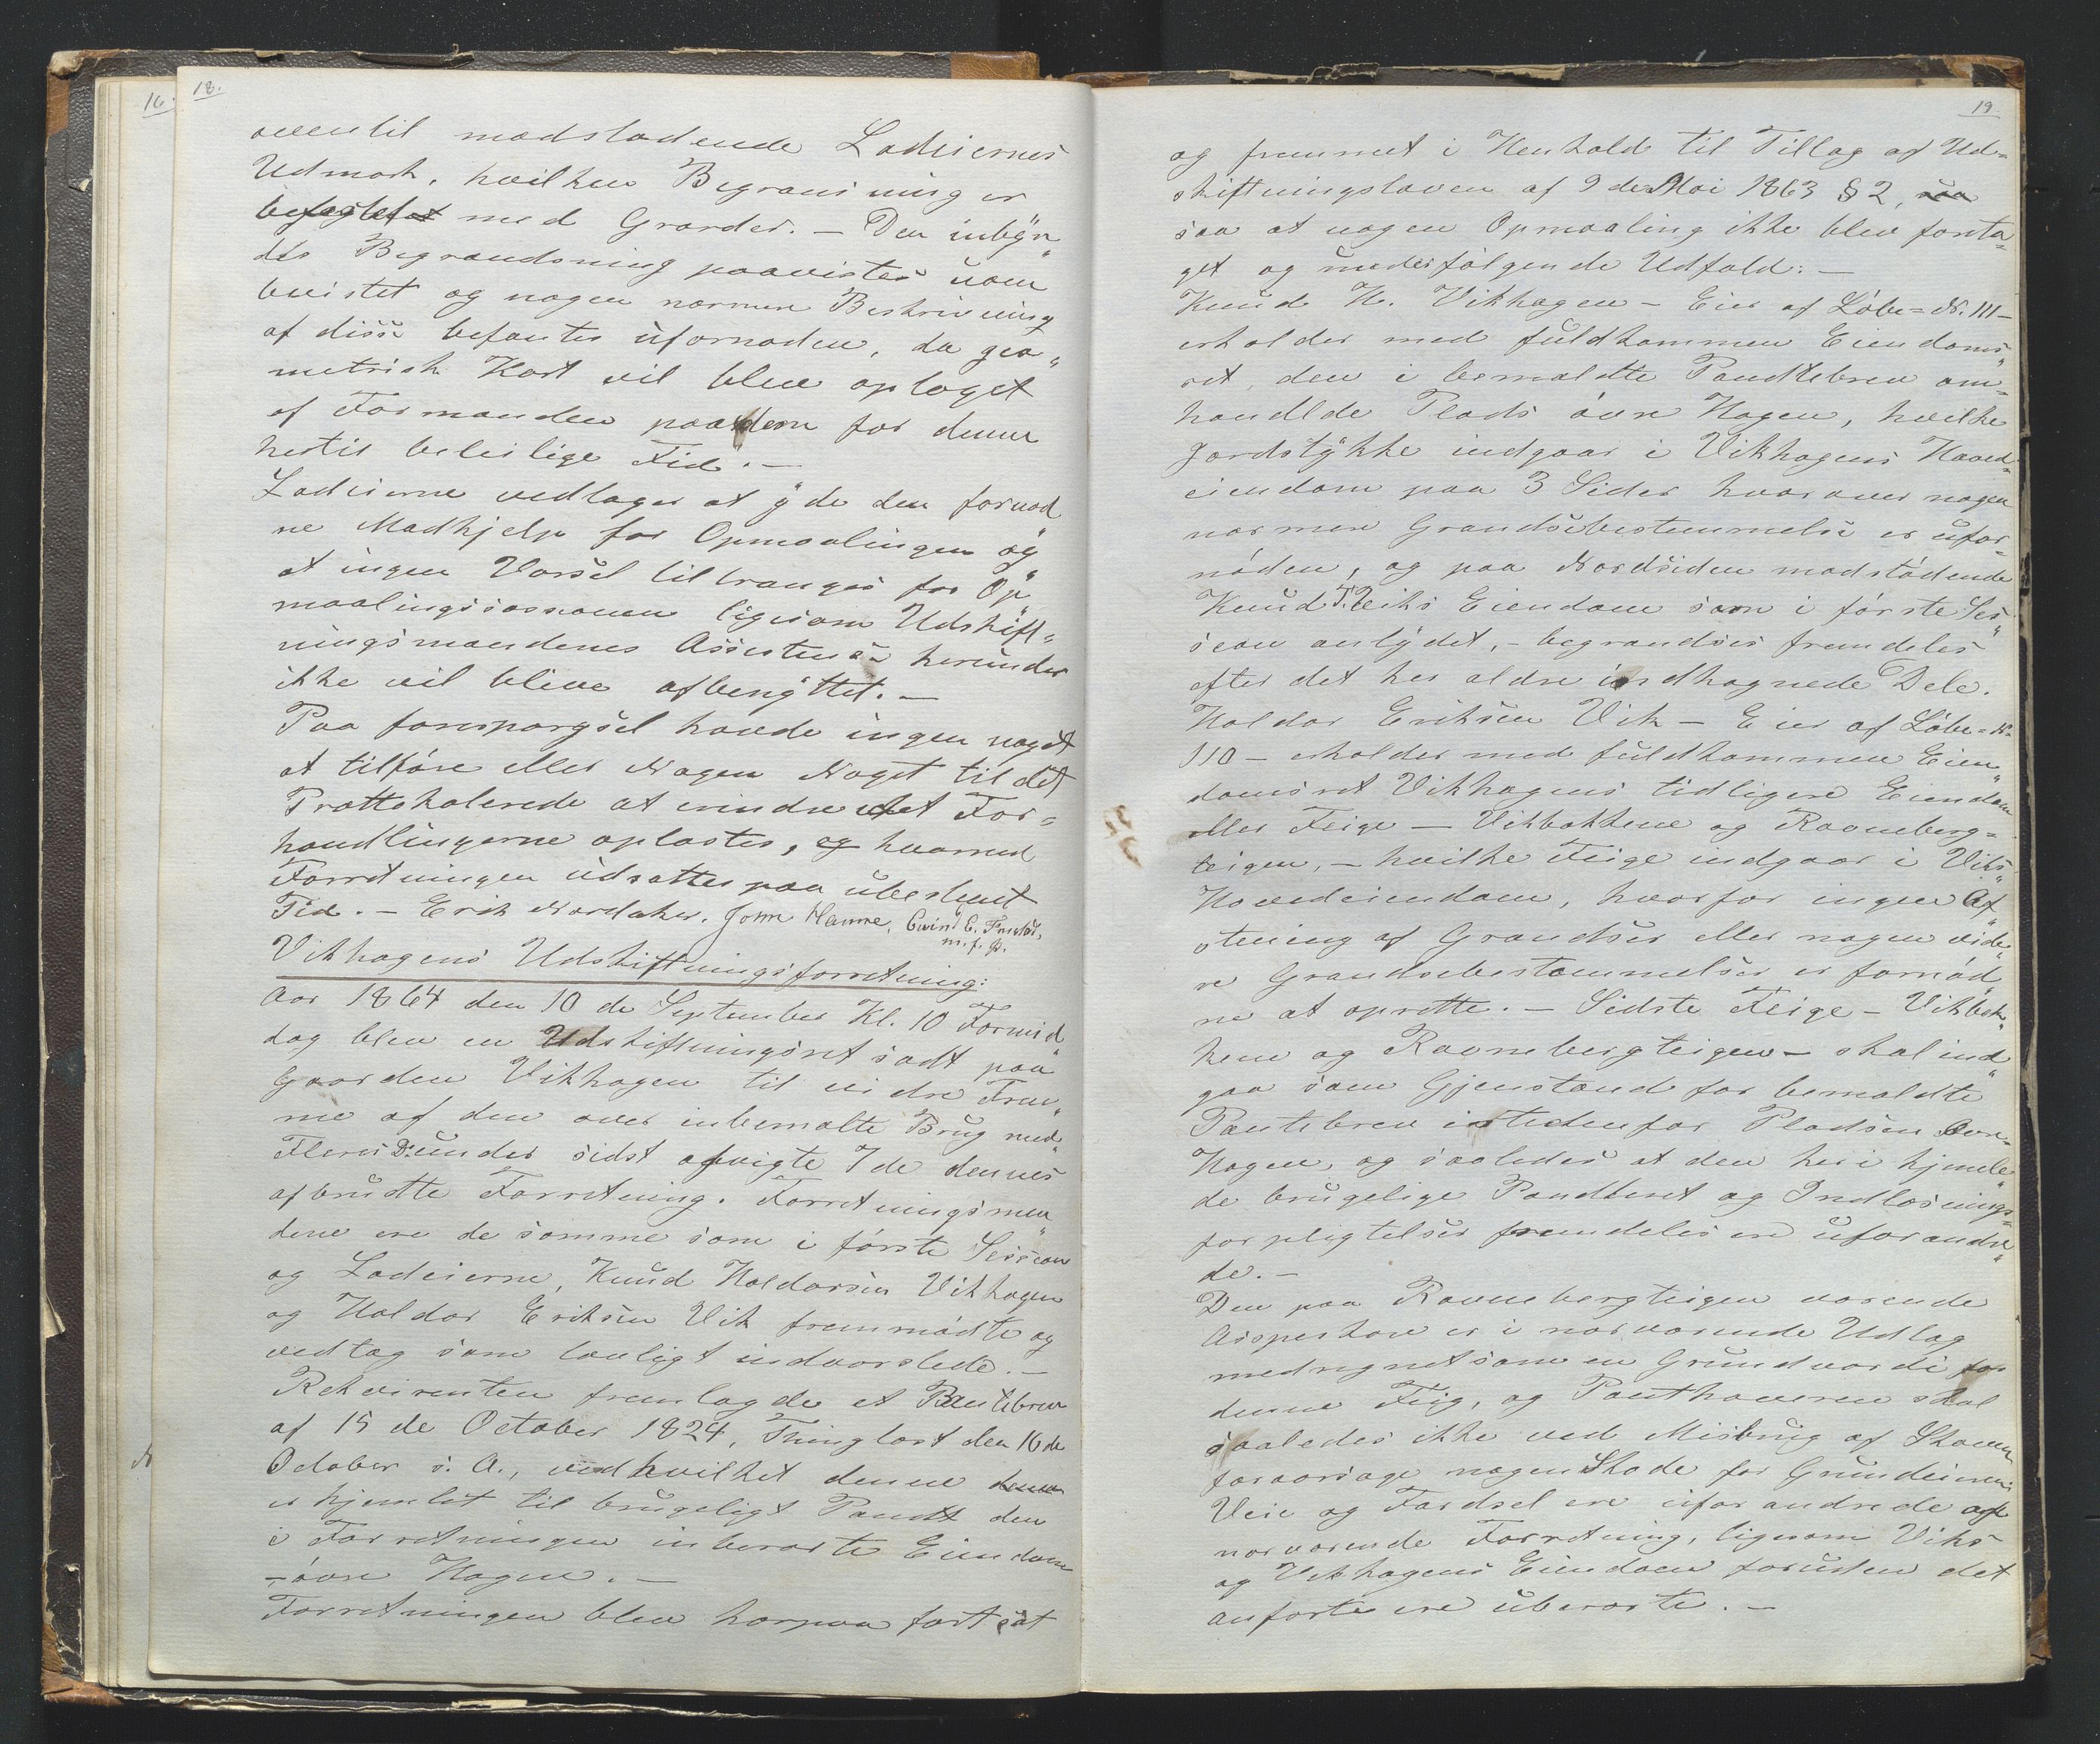 16.
18.
oventil modstødende Lodeiernes
Udmark, hvilken Begrænsning er
befæstet med Grarder. — Den inbyr„
des Begrændsning paavistes uom„
tvistet og nogen nærmere Beskrivning
af disse befantes ufornøden, da geo„
metrisk Kart vil blive optaget
af Formanden paa dem for denne
hertil beleilige Tid. —
Lodeierne vedtager at yde den fornød
ne Medhjelp for Opmaalingen og
at ingen Varsel tiltrænges for Op„
maalingssessionen ligesom Udskift=
ningsmændenes Assistense herunder
ikke vil blive afbenyttet. —
Paa forespørgsel havde ingen noget
at tilføre eller Nogen Noget til det
Prottokolerede at erindre efter at For=
handlingerne oplæstes, og hvormed
Forretningen udsættes paa ubestemt
Tid. — Erik Nordaker. John Hamre, Eivind E.
m. f. P.
Vikhagens Udskiftningsforretning:
Aar 1864 den 10 de September Kl. 10 Formid„
dag blev en Udskiftningsret sadt paa
Gaarden Vikhagen til vidre Frem„
me af den over inbemælte Brug med
Fleres D: under sidst afvigte 7 de dennes
afbrudte Forretning. Forretningsmæn„
dene ere de samme som i første Session
og Lodeierne, Knud Haldorsen Vikhagen
og Haldor Eriksen Vik fremmødte og
vedtog som lovligt indvarslede. —
Rekvirenten fremlagde et Pantebrev
af 15 de October 1824, Thinglæst den 16 de
October s. A., ved hvilket denne denne
er hjemlet til brugeligt Pandt den
i Forretningen inberørte Eiendom
— øvre Hagen. —
Forretningen blev herpaa fortsat
19
og fremmet i Henhold til Tillæg af Ud=
skiftningsloven af 9 de Mai 1863 § 2, saa
saa at nogen Opmaaling ikke blev foreta=
get og med følgende Udfald: —
Knud H. Vikhagen — Eier af Løbe=N. 111 —
erholder med fuldkommen Eiendoms„
ret, den i bemældte Pandtebrev om=
handlede Plads øvre Hagen, hvilke
Jordstykke indgaar i Vikhagens Hoved=
eiendom paa 3 Sider hvorover nogen
nærmere Grændsebestemmelse er ufor=
nøden, og paa Nordsiden modstødende
Knud T. Veiks Eiendom som i første Ses„
sion anlydet, — begrændses fremdeles
efter det her ældre indhegnede Dele.
Haldor Eriksen Vik — Eier af Løbe=N.
110 — erholder med fuldkommen Eien„
domsret Vikhagens tidligere Eiendom
eller Teige — Vikbakkene og Ravneberg=
teigen, — hvilke Teige indgaar i Viks„
Hovedeiendom, hvorfor ingen Af„
stening af Grændser eller nogen vide„
re Grændsebestemmelser er fornød„
ne at oprette. — Sidste Teige — Vikbak„
kene og Ravnebergteigen — skal ind„
gaa som Gjenstand for bemældte
Pantebrev istedenfor Pladsen øvre
Hagen, og saaledes at den heri hjemle„
de brugelige Pandteret og Indløsnings=
forpligtelser fremdeles ere uforandre„
de. —
Den paa Ravnebergteigen værende
Aspeskov er i nærværende Udlæg
medregnet som en Grundværdi for
denne Teig, og Panthaveren skal
saaledes ikke ved Misbrug af Skoven
foraarsage nogen Skade for Grundeieren.
Veie og Færdsel ere uforandrede af
nærværende Forretning, ligesom Viks
og Vikhagens Eiendom foruden det
anførte ere uberørte. —